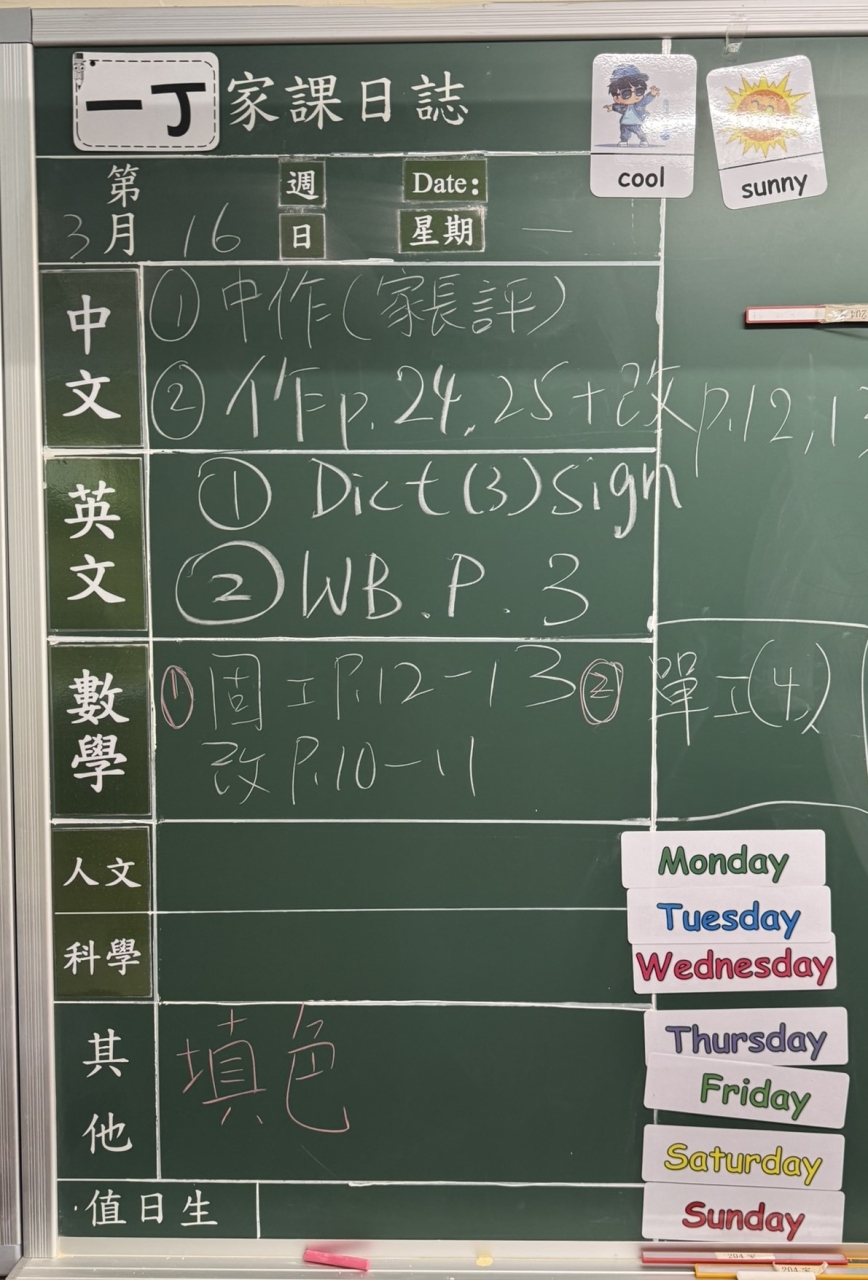 一丁 家課日誌
cool
sunny
第 週 Date:
3月 16 日 星期 一
中文
① 中作(家長評)
② 作p.24,25+改p.12,1
英文
① Dict(3)sign
② WB.P.3
數學
① 固工P.12-13 ② 單工(4)
改P.10-11
人文
科學
其他
填色
值日生
Monday
Tuesday
Wednesday
Thursday
Friday
Saturday
Sunday
204 家
204 家